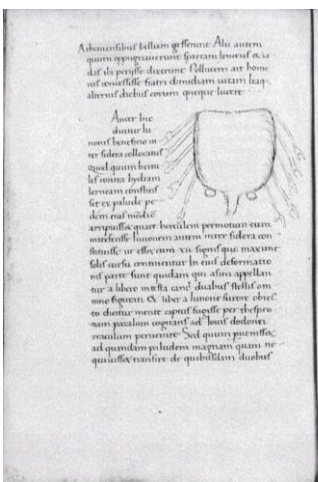 Atheniensibus bellum gesserint Alii autem
quum oppugnaverint spartam lynceus & i
das ibi perisse dixerunt Pollucem ait home
rus concessisse fratri dimidiam vitam Itaq;
alternis diebus eorum quęque lucere
Ancer hic
dicitur Iu
nonis beneficio in
ter sidera collocatus
quod quum hercu
les contra hydram
lerneam constitis
set ex palude pe
dem eius medio
arripuisset quare herculem permotum eum
interfecisse Iunonem autem inter sidera con
stituisse ut esset cum xii signis quę maxime
solis cursu continentur In eius deformatio
nis parte sunt quidam qui asini appellan
tur a libero in testa duabus stellis om
nino figurati Ex liber a Iunone furore obiec
to dicitur mente captus fugisse per thespro
tiam cogitans ad Iovis dodonei
oraculum pervenire Sed quum
ad quandam paludem magnam quam ne
quivisset transire de quibusdam duobus